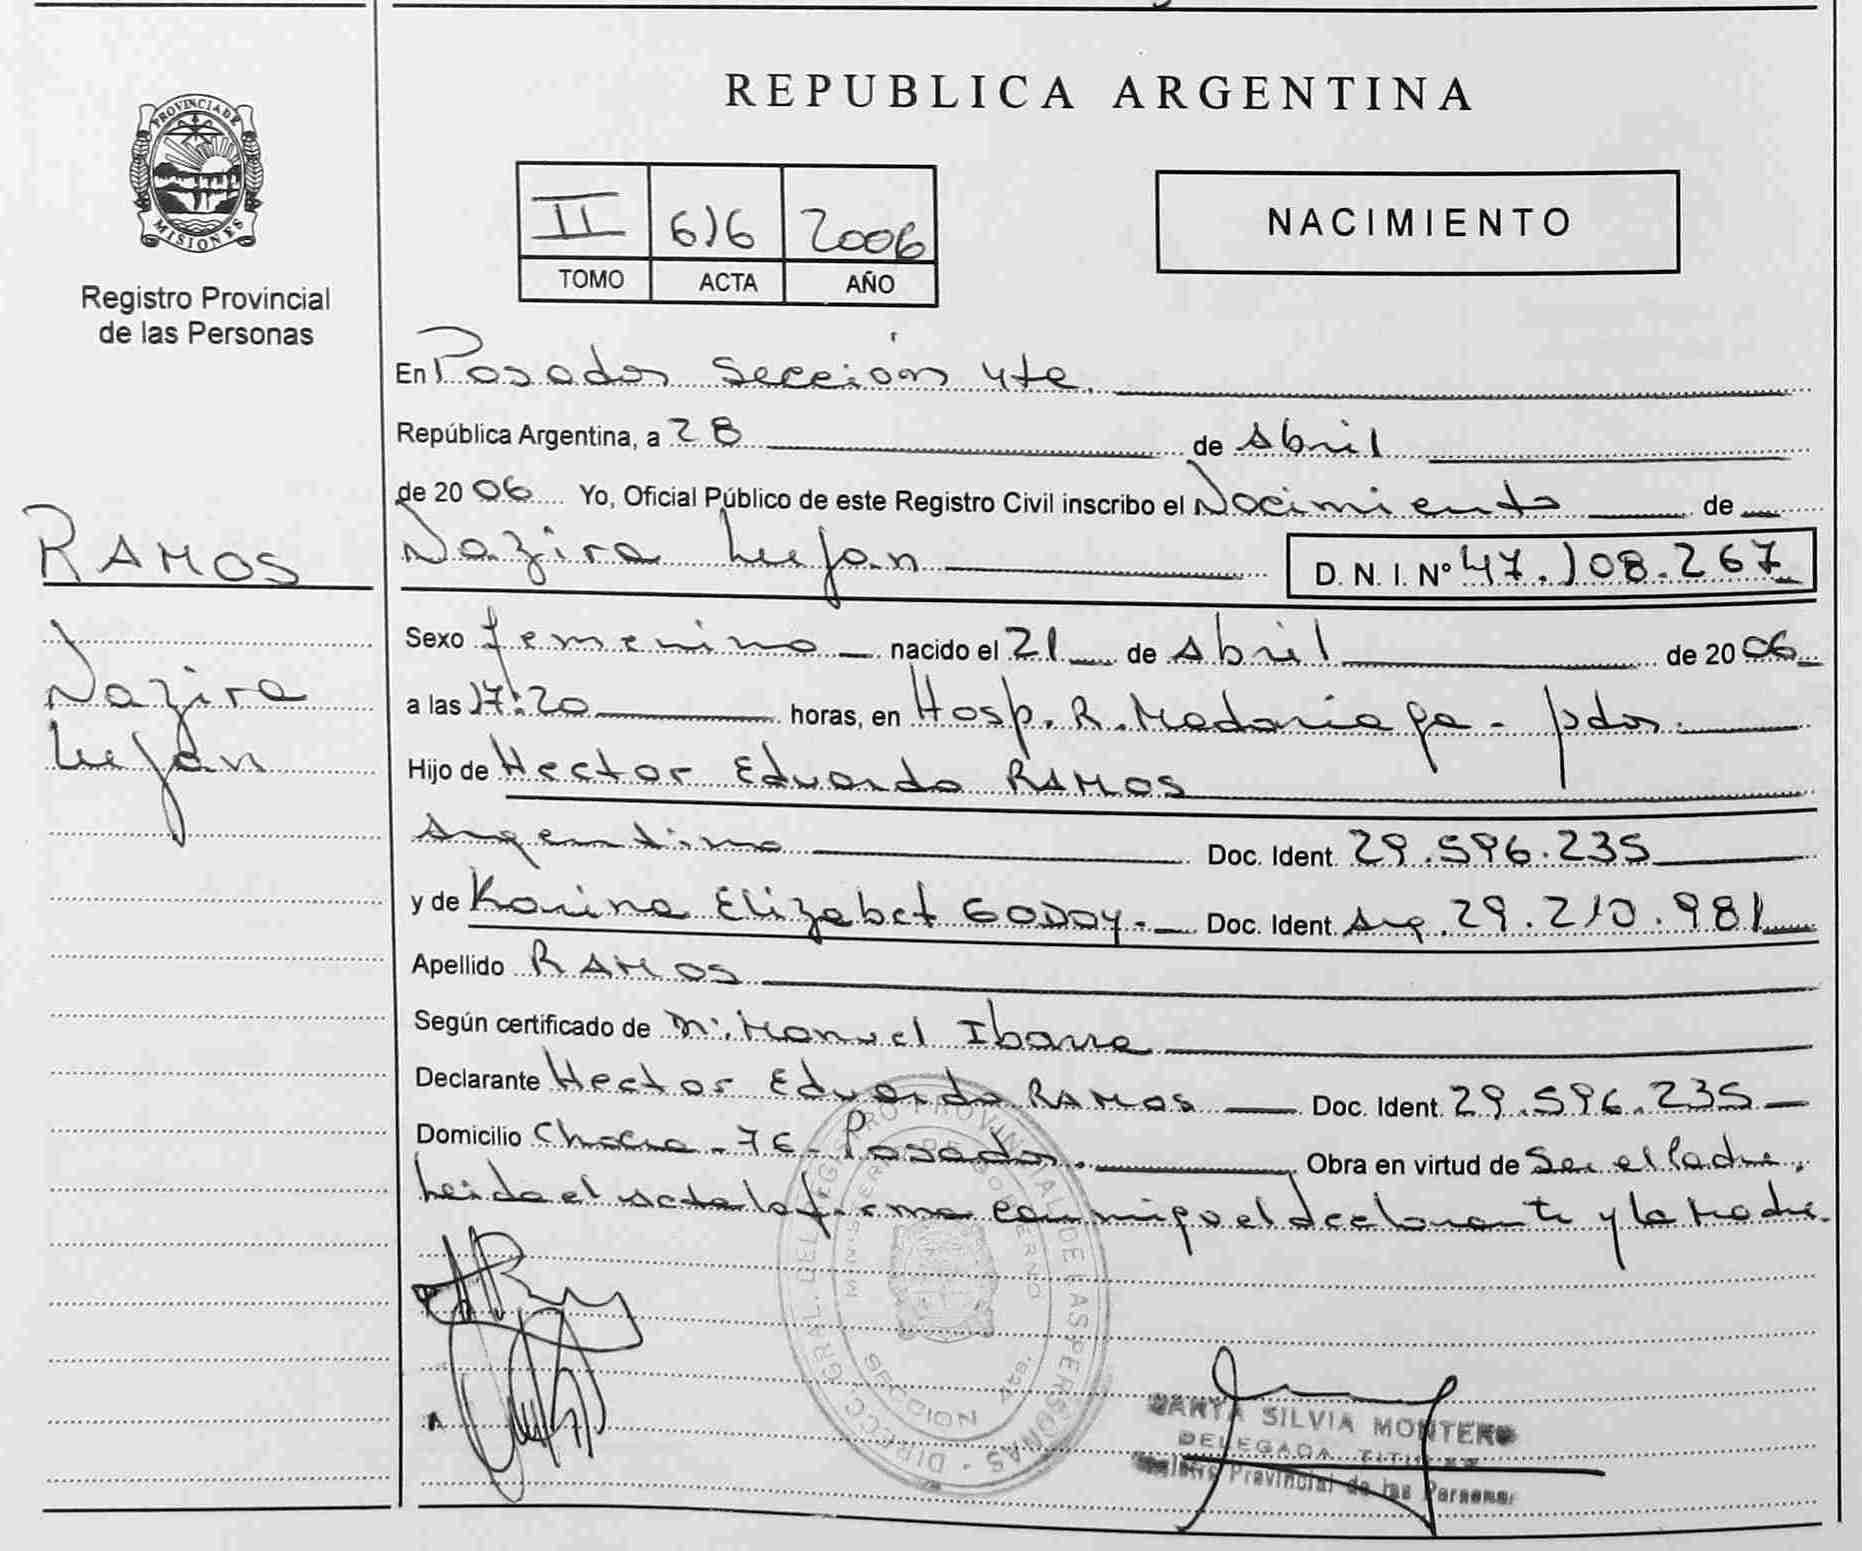 REPUBLICA ARGENTINA
PROVINCIA DE MISIONES
Registro Provincial
de las Personas
II 616 2006
TOMO ACTA AÑO
NACIMIENTO
En Posadas Sección 4ta.
República Argentina, a 28 de Abril
de 2006 Yo, Oficial Público de este Registro Civil inscribo el Nacimiento de
RAMOS
Nazira Lujan
Nazira Lujan D. N. I. Nº 47.108.267
Sexo femenino nacido el 21 de Abril de 2006
a las 17:20 horas, en Hosp. R. Madariaga - pdas.
Hijo de Hector Eduardo RAMOS
Argentino Doc. Ident. 29.596.235
y de Karina Elizabet GODOY.- Doc. Ident. Arg. 29.210.981
Apellido RAMOS
Según certificado de Manuel Ibarra
Declarante Hector Eduardo RAMOS Doc. Ident. 29.596.235
Domicilio Chacra - 76 - Posadas. Obra en virtud de Ser el Padre.
Leida el acta la firma conmigo el declarante y la Madre.
DIRECC. GRAL. DEL REGISTRO PROVINCIAL DE LAS PERSONAS
MINISTERIO DE GOBIERNO
SECCION 4ta.
SILVIA MONTERO
DELEGADA TITULAR
Registro Provincial de las Personas